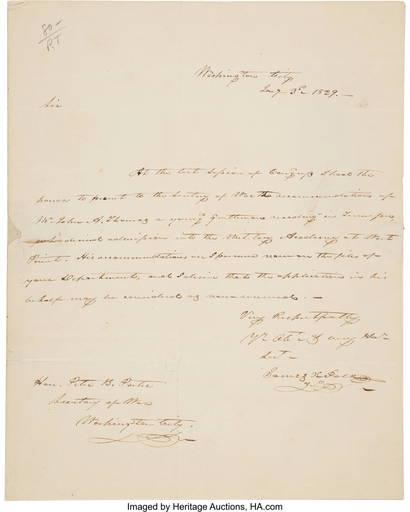 80-
P.T
Washington City
Jany 3d 1829.—
Sir
At the last Session of Congress I had the
honor to present to the Secretary of War the recommendations of
Mr. John A. Thomas a young Gentleman residing in Tennessee,
who desired admission into the Military Academy at West
Point. His recommendations are I presume now on the files of
your Department, and I desire that the application in his
behalf may be considered as renewed. —
Very Respectfully
Yr. Obt. &
Svt.
James K. Polk
Hon. Peter B. Porter
Secretary of War
Washington City.
Imaged by Heritage Auctions, HA.com